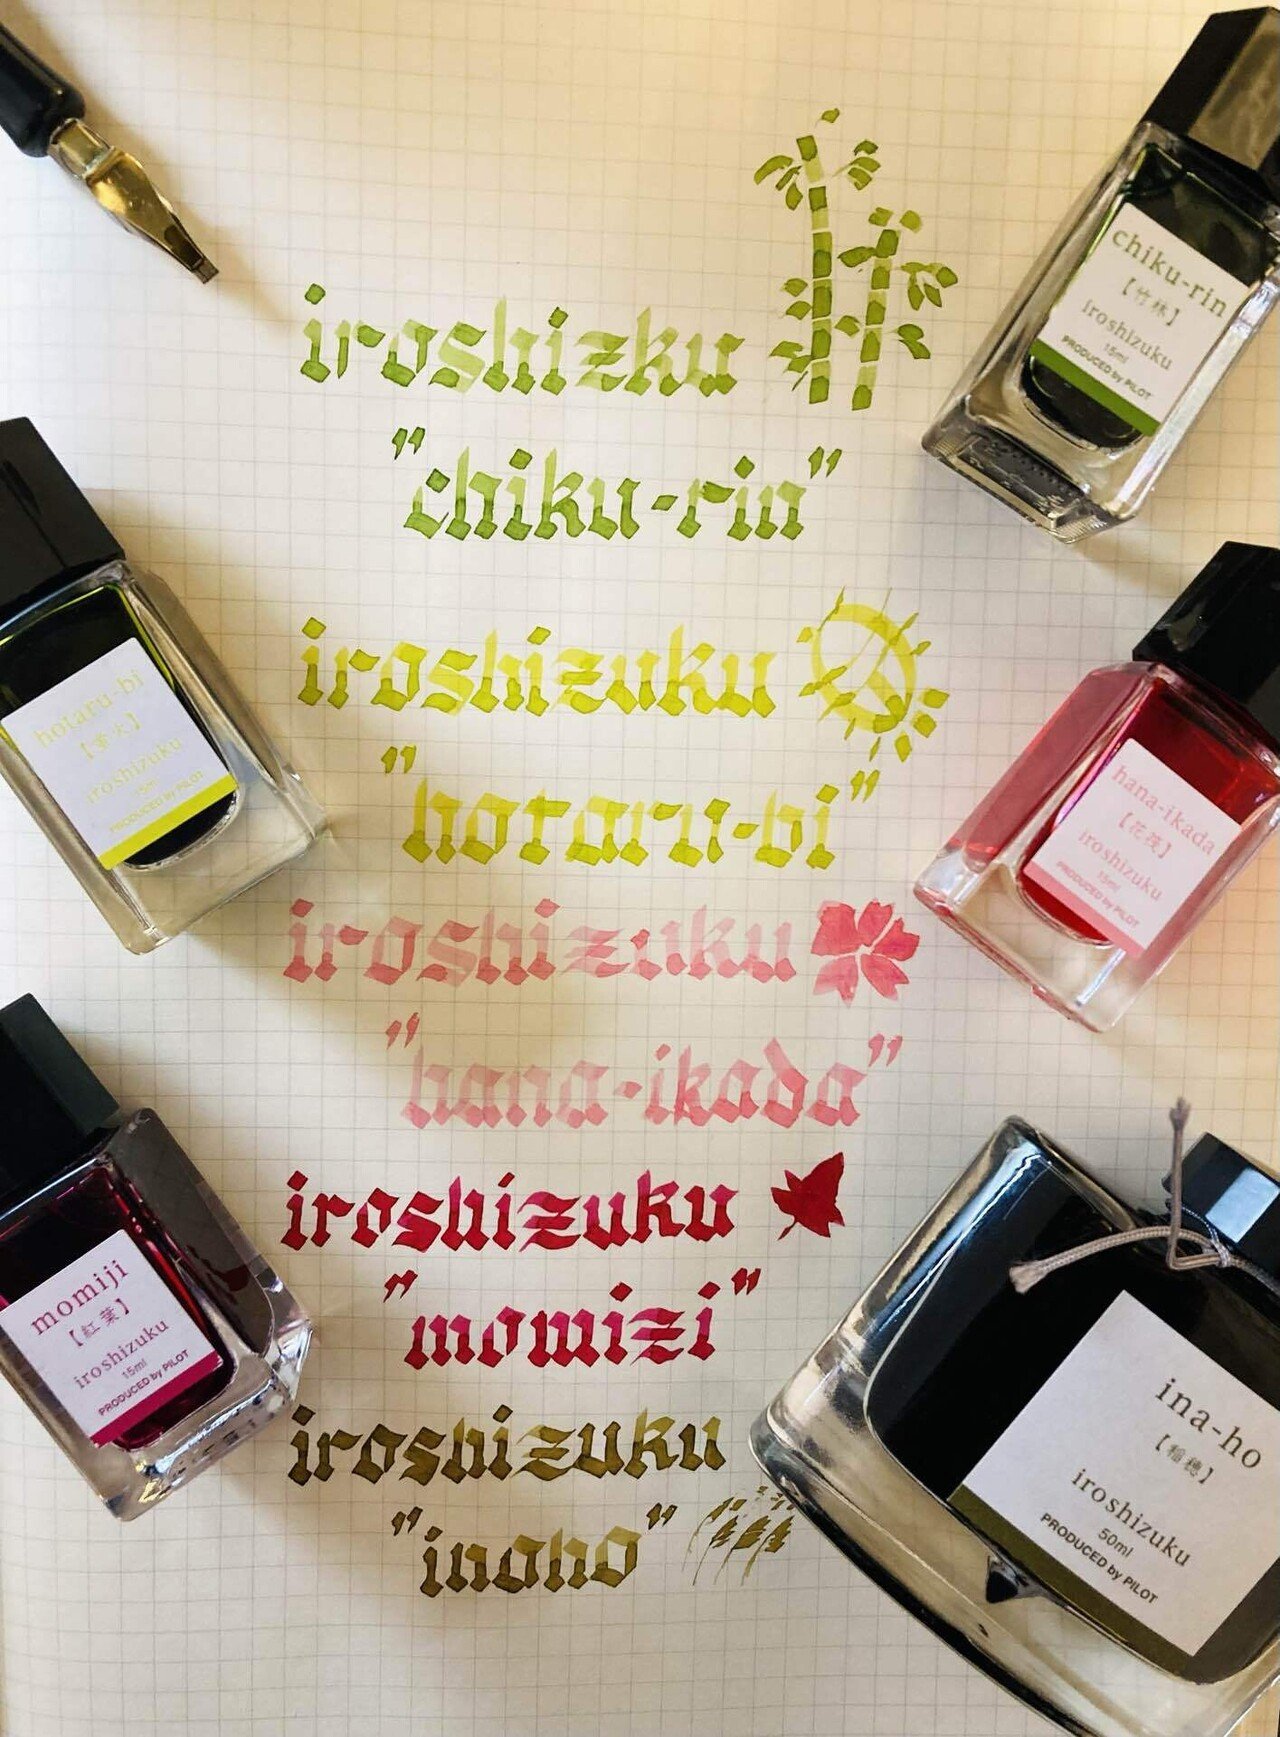 iroshizku
"chiku-rin"
iroshizuku
"hotaru-bi"
iroshizuku
"hana-ikada"
iroshizuku
"momizi"
iroshizuku
"inoho"
chiku-rin
【竹林】
iroshizuku
15ml
PRODUCED by PILOT
hotaru-bi
【蛍火】
iroshizuku
15ml
PRODUCED by PILOT
hana-ikada
【花筏】
iroshizuku
15ml
PRODUCED by PILOT
momiji
【紅葉】
iroshizuku
15ml
PRODUCED by PILOT
ina-ho
【稲穂】
iroshizuku
50ml
PRODUCED by PILOT